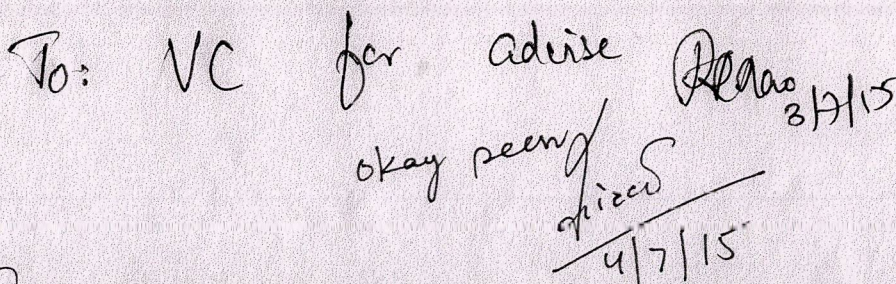 To: VC for advise 3/7/15
okay seen
4/7/15